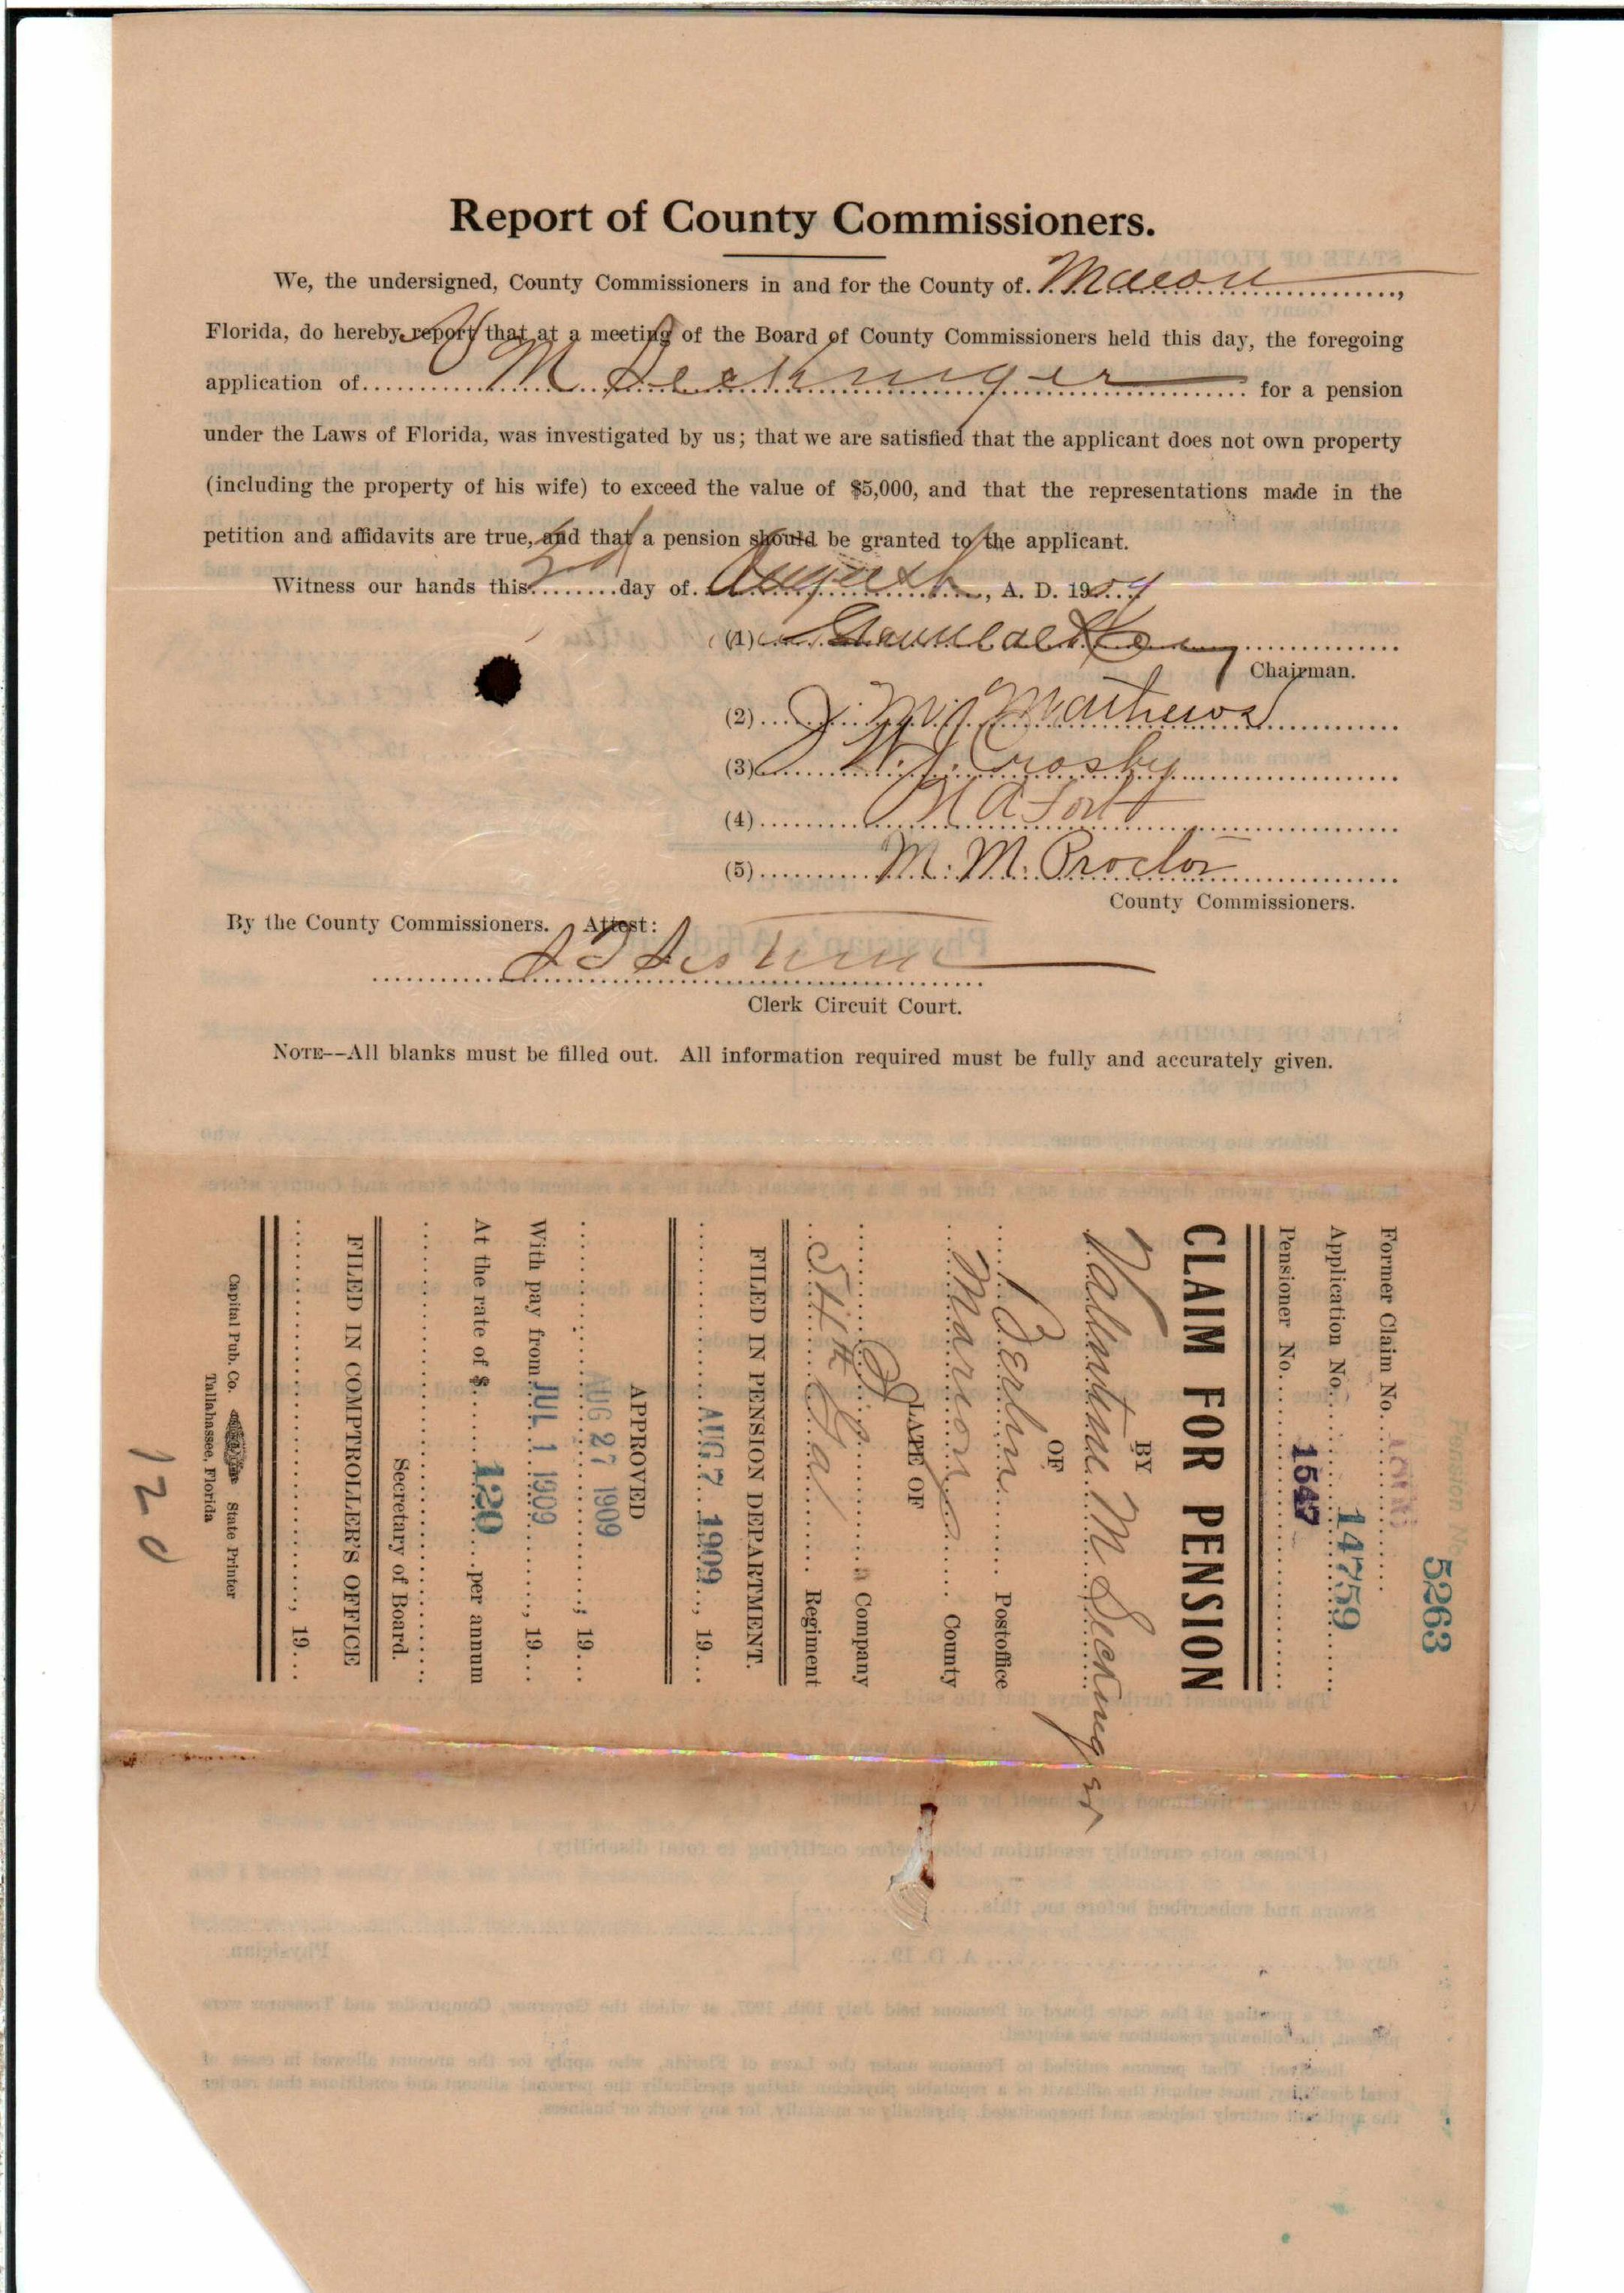 Report of County Commissioners.
We, the undersigned, County Commissioners in and for the County of Marion,
Florida, do hereby report that at a meeting of the Board of County Commissioners held this day, the foregoing
application of V M Seckinger for a pension
under the Laws of Florida, was investigated by us; that we are satisfied that the applicant does not own property
(including the property of his wife) to exceed the value of $5,000, and that the representations made in the
petition and affidavits are true, and that a pension should be granted to the applicant.
Witness our hands this 2d day of August, A. D. 1909
(1)
Chairman.
(2) J. M. Mathews
(3) W. J. Crosby
(4) N A Fort
(5) M. M. Proctor
County Commissioners.
By the County Commissioners. Attest:
S T Sistrunk
Clerk Circuit Court.
NOTE--All blanks must be filled out. All information required must be fully and accurately given.
Pension No. 5263
Former Claim No.
Application No. 14759
Pensioner No. 1547
CLAIM FOR PENSION
BY
Valentine M Seckinger
OF
Berlin Postoffice
Marion County
LATE OF
Company
54th Ga Regiment
FILED IN PENSION DEPARTMENT.
AUG 7 1909, 19
APPROVED
AUG 27 1909, 19
With pay from JUL 1 1909, 19
At the rate of $ 120 per annum
Secretary of Board.
FILED IN COMPTROLLER'S OFFICE
, 19
Capital Pub. Co. State Printer
Tallahassee, Florida
120